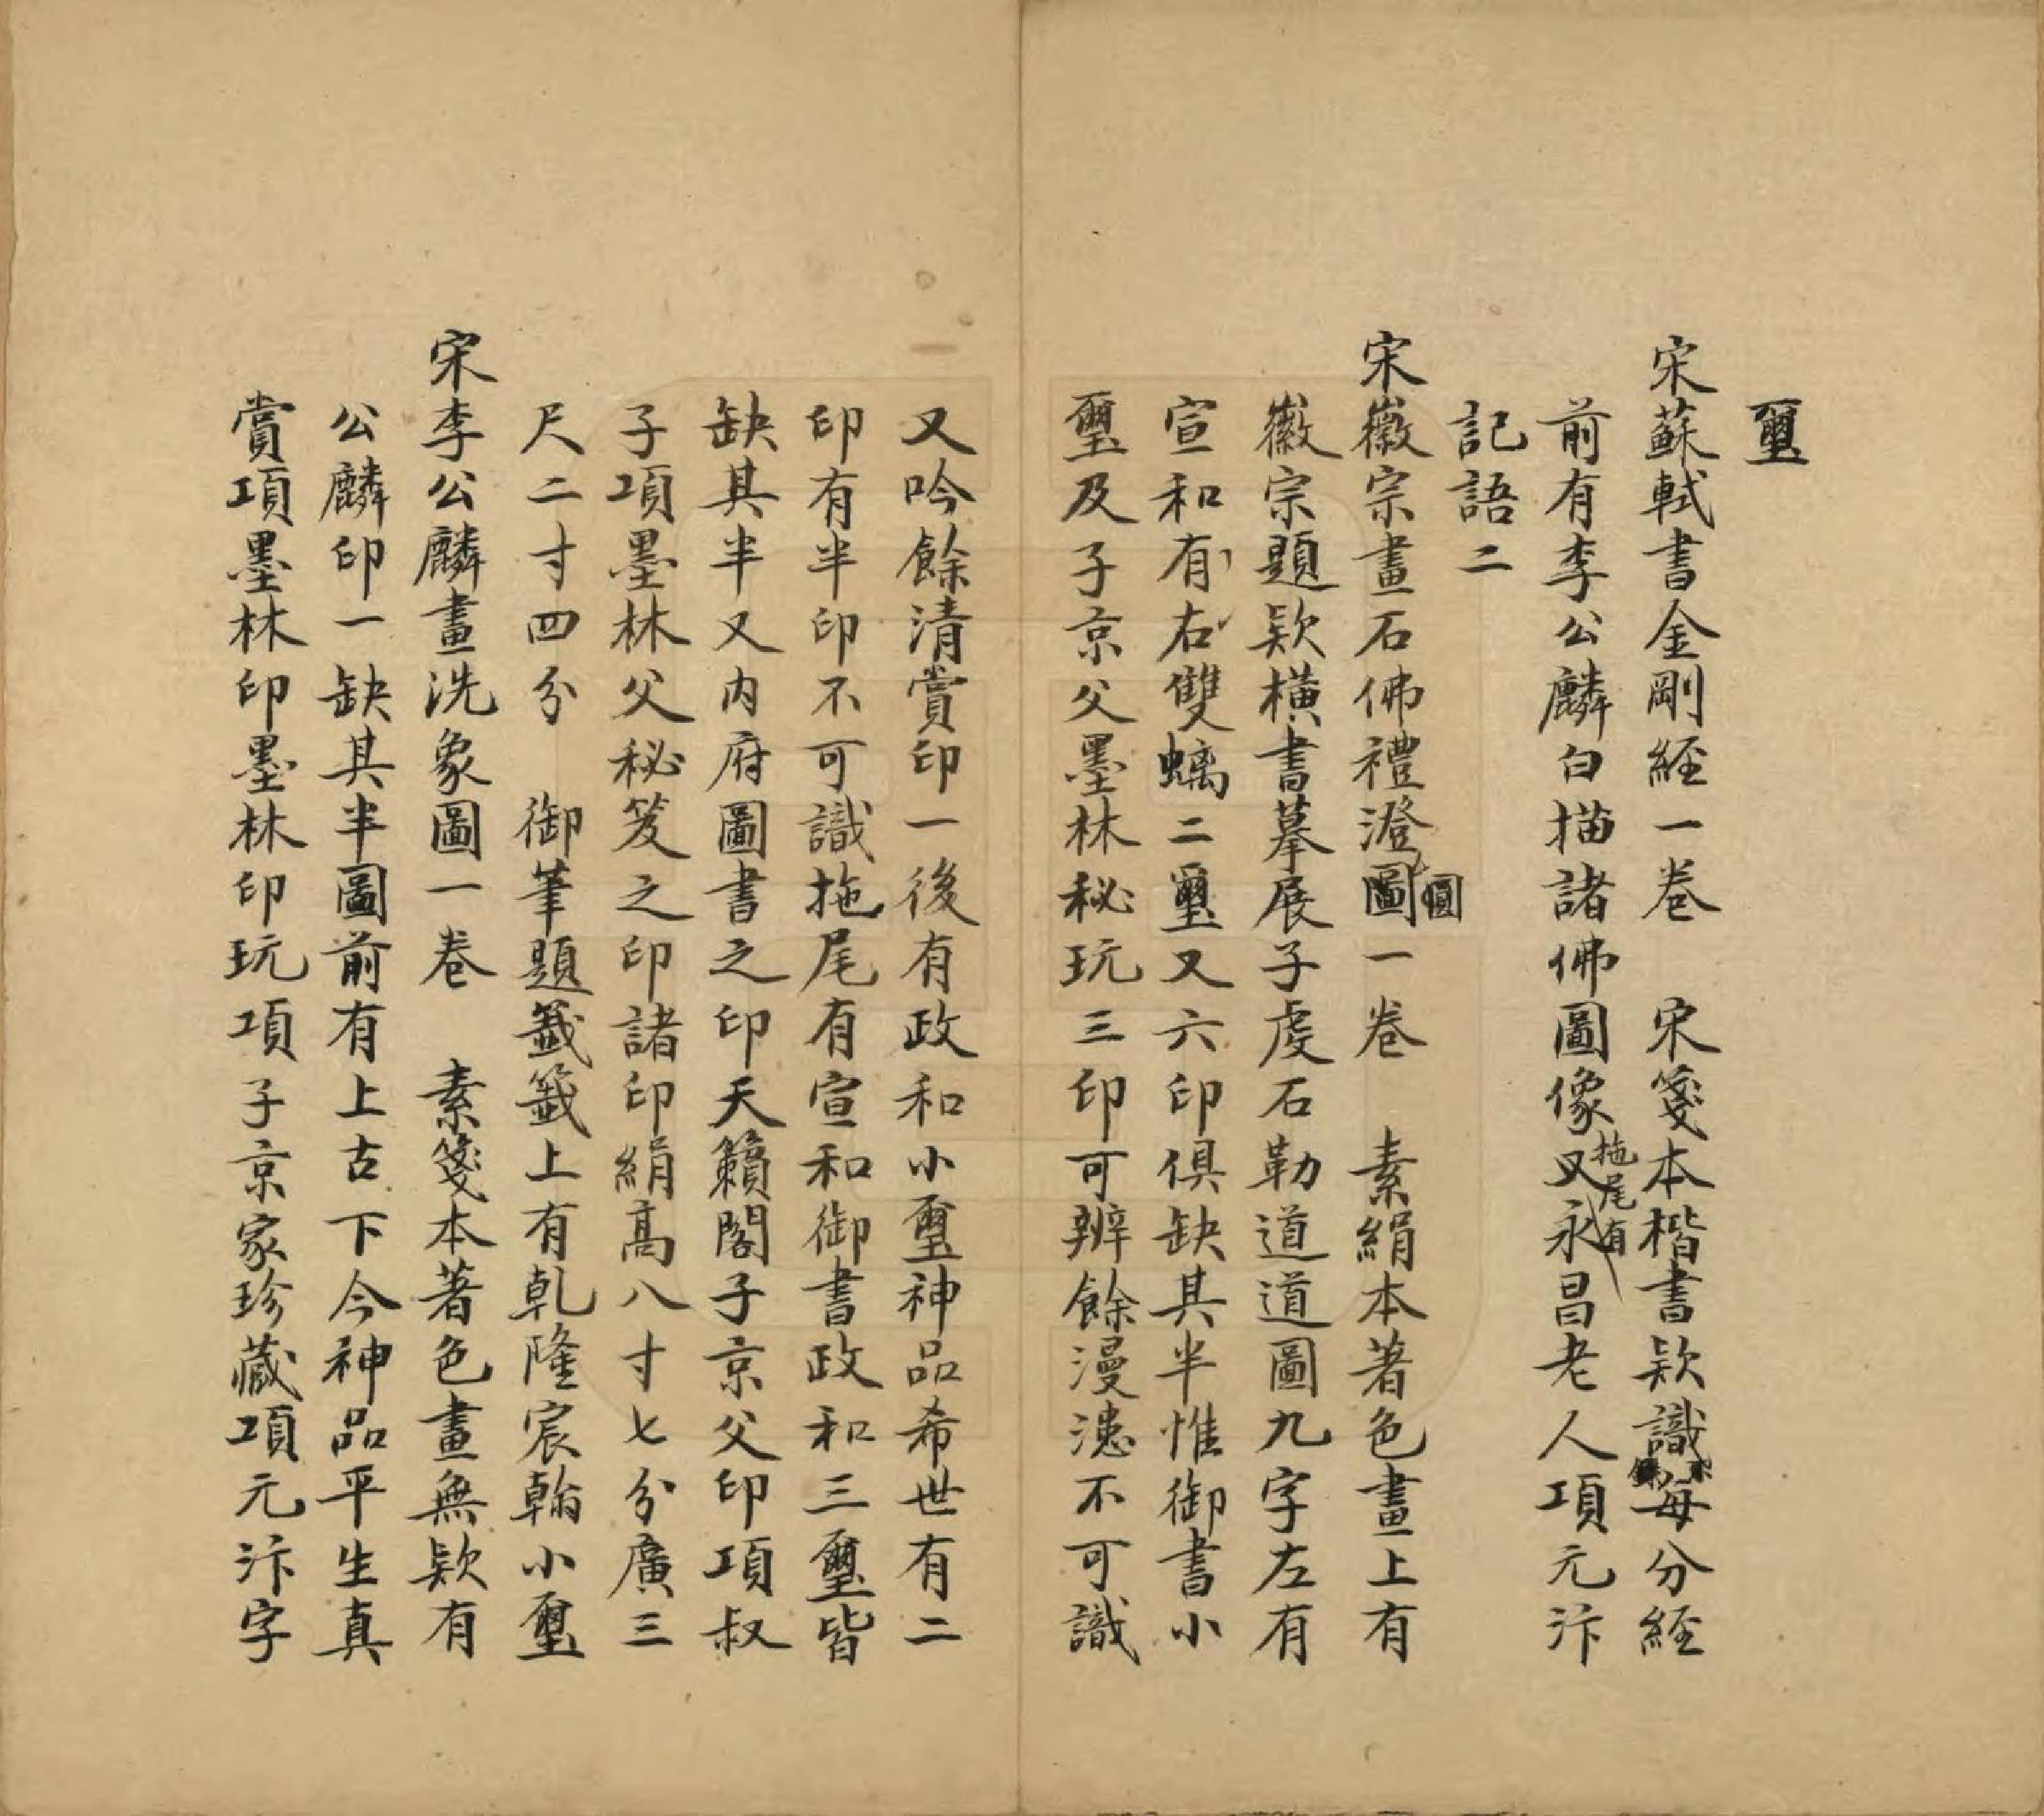 璽
宋蘇軾書金剛經一卷　宋箋本楷書欵識每分經
前有李公麟白描諸佛圖像又拖尾有永昌老人項元汴
記語二
宋徽宗畫石佛禮澄圖一卷　素絹本著色畫上有
徽宗題欵橫書摹展子虔石勒道道圖九字左有
宣和有右雙螭二璽又六印俱缺其半惟御書小
璽及子京父墨林秘玩三印可辨餘漫漶不可識
又吟餘清賞印一後有政和小璽神品希世有二
印有半印不可識拖尾有宣和御書政和三璽皆
缺其半又内府圖書之印天籟閣子京父印項叔
子項墨林父秘笈之印諸印絹高八寸七分廣三
尺二寸四分　御筆題籤籤上有乹隆宸翰小璽
宋李公麟畫洗象圖一卷　素箋本著色畫無欵有
公麟印一缺其半圖前有上古下今神品平生真
賞項墨林印墨林印玩項子京家珍藏項元汴字